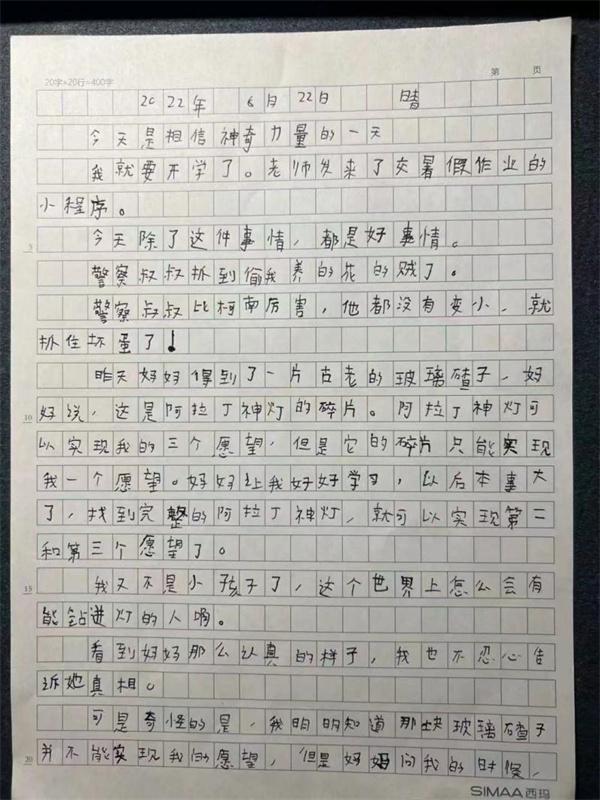 20字×20行=400字
第 页
2022年 6月22日 晴
今天是相信神奇力量的一天
我就要开学了。老师发来了交暑假作业的
小程序。
今天除了这件事情，都是好事情。
5
警察叔叔抓到偷我养的花的贼了。
警察叔叔比柯南厉害，他都没有变小，就
抓住坏蛋了！
昨天妈妈得到了一片古老的玻璃碴子，妈
妈说，这是阿拉丁神灯的碎片。阿拉丁神灯可
10
以实现我的三个愿望，但是它的碎片只能实现
我一个愿望。妈妈让我好好学习，以后本事大
了，找到完整的阿拉丁神灯，就可以实现第二
和第三个愿望了。
我又不是小孩子了，这个世界上怎么会有
15
能钻进灯的人啊。
看到妈妈那么认真的样子，我也不忍心告
诉她真相。
可是奇怪的是，我明明知道那块玻璃碴子
并不能实现我的愿望，但是妈妈问我的时候，
20
SIMAA西玛